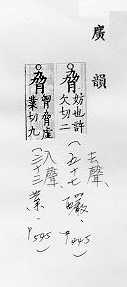 廣韻
脅
妨也許
欠切二
去聲、
(五十七 釅、P445)
脅
胷脅虛
業切九
入聲、
(三十三 業、P545)